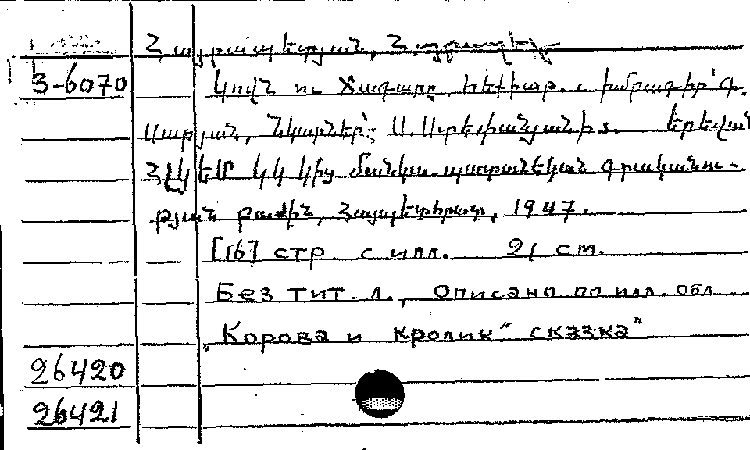 Հայրապետյան, Հայրապետ
3-6070 Կովն ու Ճագարը, Հեքիաթ. խմբագիր՝ Գ.
Սարյան, Նկարներ՝ Ա. Երևան
ՀԼԿԵՄ ԿԿ կից մանկա-պատանեկան գրականու-
թյան բաժին, Հայպետհրատ, 1947.
[16] стр с илл. 21 cm.
Без тит. л., описано по илл. обл
"Корова и кролик" сказка"
26420
26421